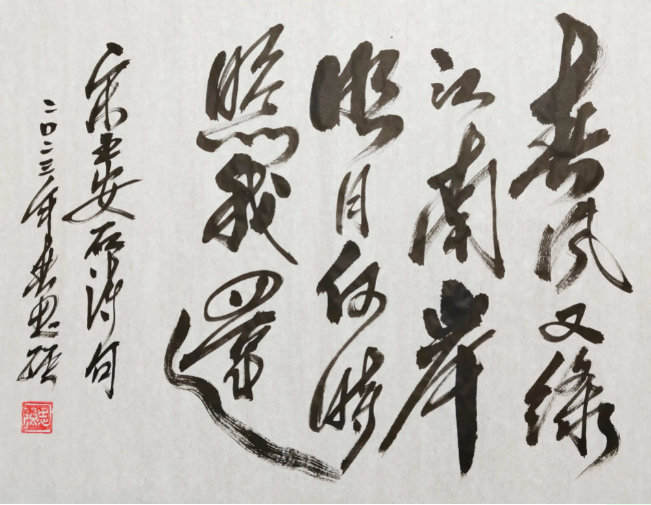 春风又绿
江南岸
明月何時
照我還
宋王安石诗句
二〇二三年